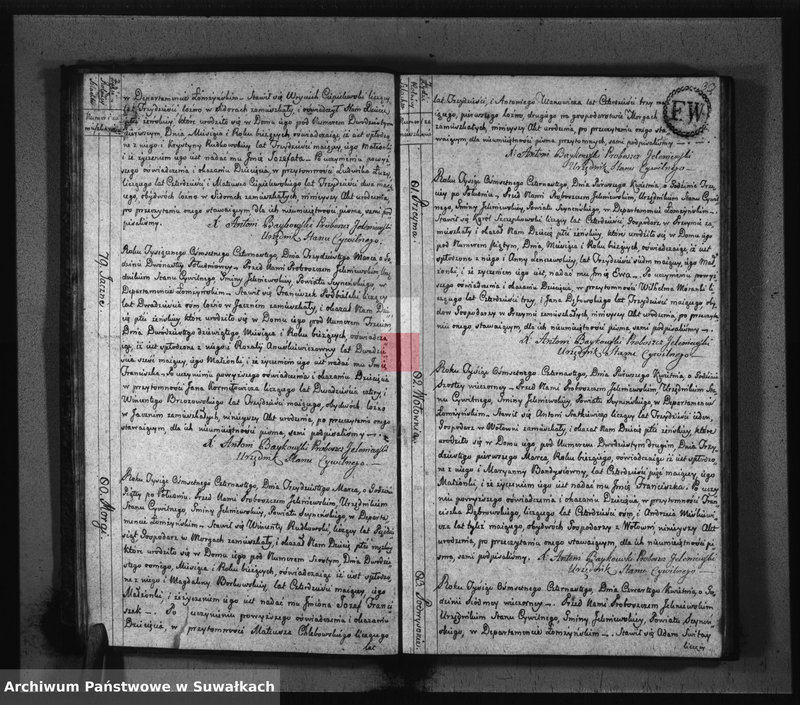 w Departamencie Łomżyńskim. Stawił się Woyciech Ciepielewski liczący
lat Trzydzieści
w Sidorach zamieszkały, i okazał Nam Dziecię
płci żeńskiey, które urodziło się w Domu iego pod Numerem
Dnia Miesiąca i Roku bieżących, oświadczaiąc, iż iest spłodzo-
ne z niego i Krystyny Rudkowskiey lat Trzydzieści maiącey, iego Małżonki
i że życzeniem iego iest nadać mu Jmię Jozefata. Po uczynieniu powyż-
szego oświadczenia i okazaniu Dziecięcia, w przytomności Ludwika
liczącego lat Czterdzieści i Mateusza Ciepielewskiego lat Trzydzieści dwa maią-
cego, obydwóch w Sidorach zamieszkałych, ninieyszy Akt urodzenia,
po przeczytaniu onego stawaiącym dla ich nieumieiętności pisma, sami pod-
pisaliśmy.
X. Antoni Baykowski Proboszcz Jeleniewski
Urzędnik Stanu Cywilnego.
79. Jaczne.
Roku Tysiącznego Ośmsetnego Czternastego, Dnia Trzydziestego Marca, o Go-
dzinie Dwunastey Południowey. Przed Nami Proboszczem Jeleniewskim Urzę-
dnikiem Stanu Cywilnego Gminy Jeleniewskiey, Powiatu Seyneńskiego, w
Departamencie Łomżyńskim. Stawił się Franciszek liczący
lat Dwadzieścia ośm w Jacznem zamieszkały, i okazał Nam Dzie-
cię płci żeńskiey, które urodziło się w Domu iego pod Numerem Trzecim
Dnia Dwudziestego dziewiątego Miesiąca i Roku bieżących, oświadcza-
iąc, iż iest spłodzone z niego i Rozalii lat Dwadzie-
ścia sześć maiącey, iego Małżonki, i że życzeniem iego iest nadać mu Jmię
Franciszka. Po uczynieniu powyższego oświadczenia i okazaniu Dziecięcia
w przytomności Jana liczącego lat Dwadzieścia cztery i
Wincentego Brzozowskiego lat Trzydzieści maiącego, obydwóch
w Jacznem zamieszkałych, ninieyszy Akt urodzenia, po przeczytaniu onego
stawaiącym, dla ich nieumieiętności pisma, sami podpisaliśmy.
X. Antoni Baykowski Proboszcz Jeleniewski
Urzędnik Stanu Cywilnego.
80. Morgi.
Roku Tysiąc Ośmsetnego Czternastego, Dnia Trzydziestego Marca, o Godzinie
Piątey po Południu. Przed Nami Proboszczem Jeleniewskim, Urzędnikiem
Stanu Cywilnego, Gminy Jeleniewskiey, Powiatu Seyneńskiego, w Departa-
mencie Łomżyńskim. Stawił się Wincenty Rudkowski, liczący lat Pięćdzie-
siąt Gospodarz w Morgach zamieszkały, i okazał Nam Dziecię płci męskiey
które urodziło się w Domu iego pod Numerem Szóstym, Dnia Dwudzie-
stego ósmego Miesiąca i Roku bieżących, oświadczaiąc iż iest spłodzo-
ne z niego i Magdaleny Borkowskiey, lat Czterdzieści maiącey, iego
Małżonki, i że życzeniem iego iest nadać mu Jmiona Jozef Franci-
szek. Po uczynieniu powyższego oświadczenia i okazaniu
Dziecięcia, w przytomności Mateusza Chlebowskiego liczącego
lat
FW
lat Trzydzieści, i Antoniego lat Czterdzieści trzy ma-
iącego, pierwszego drugiego na gospodarstwie w Morgach
zamieszkałych, ninieyszy Akt urodzenia, po przeczytaniu onego sta-
waiącym dla nieumieiętności pisma przytomnych, sami podpisaliśmy.
X. Antoni Baykowski Proboszcz Jeleniewski
Urzędnik Stanu Cywilnego.
81. Przejma.
Roku Tysiąc Ośmsetnego Czternastego, Dnia Pierwszego Kwietnia, o Godzinie Trze-
ciey po Południu. Przed Nami Proboszczem Jeleniewskim, Urzędnikiem Stanu Cywil-
nego, Gminy Jeleniewskiey, Powiatu Seyneńskiego, w Departamencie Łomżyńskim.
Stawił się Karol Szczęsnulewski liczący lat Czterdzieści Gospodarz w Przejmie za-
mieszkały i okazał Nam Dziecię płci żeńskiey, które urodziło się w Domu iego
pod Numerem Piątym, Dnia, Miesiąca i Roku bieżących, oświadczaiąc, iż iest
spłodzone z niego i Anny lat Trzydzieści siedm maiącey, iego Mał-
żonki, i że życzeniem iego iest, nadać mu Jmię Ewa. Po uczynieniu powyż-
szego oświadczenia i okazaniu Dziecięcia, w przytomności Wilhelma Moranta li-
czącego lat Czterdzieści trzy, i Jana Dąbrowskiego lat Trzydzieści maiącego, oby-
dwóch Gospodarzy w Przejmie zamieszkałych, ninieyszy Akt urodzenia, po przeczyta-
niu onego stawaiącym, dla ich nieumieiętności pisma sami podpisaliśmy.
X. Antoni Baykowski Proboszcz Jeleniewski
Urzędnik Stanu Cywilnego
82. Wołownia.
Roku Tysiąc Ośmsetnego Czternastego, Dnia Pierwszego Kwietnia, o Godzinie
Szóstey wieczorney. Przed Nami Proboszczem Jeleniewskim, Urzędnikiem Sta-
nu Cywilnego, Gminy Jeleniewskiey, Powiatu Seyneńskiego, w Departamencie
Łomżyńskim. Stawił się Antoni liczący lat Trzydzieści ieden,
Gospodarz w Wołowni zamieszkały, i okazał Nam Dziecię płci żeńskiey, które
urodziło się w Domu iego pod Numerem Dwudziestym drugim, Dnia Trzy-
dziestego pierwszego Marca, Roku bieżącego, oświadczaiąc iż iest spłodzo-
ne z niego i Maryanny lat Czterdzieści pięć maiącey, iego
Małżonki, i że życzeniem iego iest nadać mu Jmię Franciszka. Po uczy-
nieniu powyższego oświadczenia i okazaniu Dziecięcia, w przytomności Fran-
ciszka Dąbrowskiego, liczącego lat Czterdzieści ośm, i Andrzeia
lat tyleż maiącego, obydwóch Gospodarzy z Wołowni ninieyszy Akt
urodzenia, po przeczytaniu onego stawaiącym, dla ich nieumieiętności pi-
sma, sami podpisaliśmy. X. Antoni Baykowski Proboszcz Jeleniewski
Urzędnik Stanu Cywilnego
83.
Roku Tysiąc Ośmsetnego Czternastego, Dnia Czwartego Kwietnia, o Go-
dzinie Siódmey wieczorney. Przed Nami Proboszczem Jeleniewskim
Urzędnikiem Stanu Cywilnego, Gminy Jeleniewskiey, Powiatu Seyneń-
skiego, w Departamencie Łomżyńskim. Stawił się Adam
liczący
Archiwum Państwowe w Suwałkach